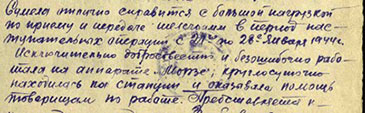 Сумела отлично справится с большой нагрузкой
по приему и передаче телеграмм в период нас-
тупательных операций с по 28е Января 1944 г.
Исключительно добросовестно и безошибочно рабо-
тала на аппарате "Морзе", круглосуточно
находилась на станции и оказывала помощь
товарищам по работе. Представляется к